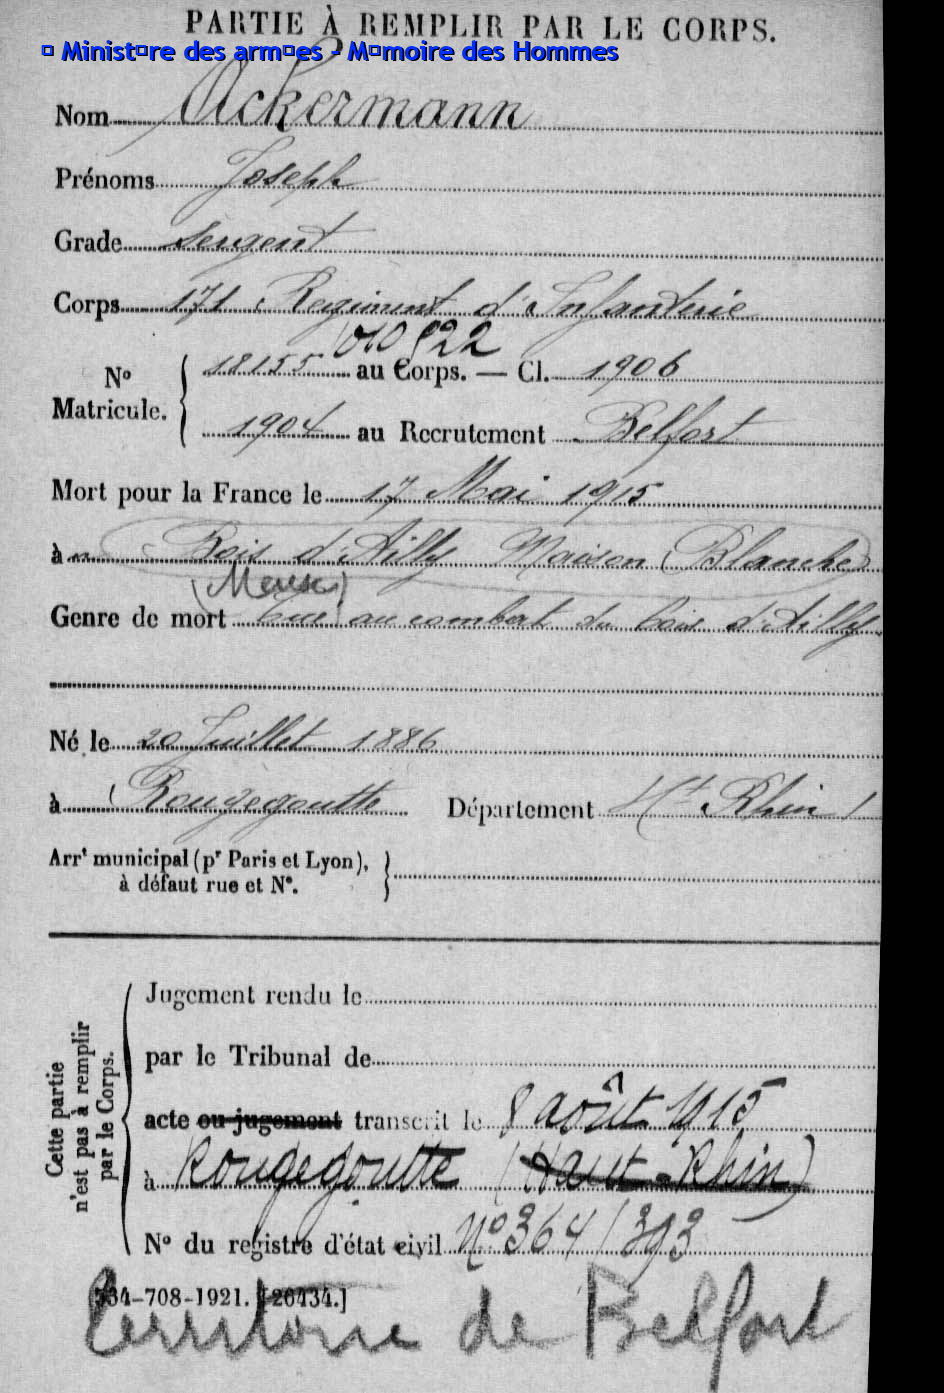 PARTIE À REMPLIR PAR LE CORPS.
� Minist�re des arm�es - M�moire des Hommes
Nom Ackermann
Prénoms Joseph
Grade Sergent
Corps 171 Regiment d'Infanterie
010922
No Matricule. 18155 au Corps. — Cl. 1906
1904 au Recrutement Belfort
Mort pour la France le 17 Mai 1915
à Bois d'Ailly Maison (Blanche)
(Meuse)
Genre de mort Tué au combat du bois d'Ailly
Né le 20 Juillet 1886
à (Rougegoutte Département Ht Rhin)
Arrt municipal (pr Paris et Lyon), à défaut rue et No.
Cette partie n'est pas à remplir par le Corps.
Jugement rendu le
par le Tribunal de
acte ou jugement transcrit le 8 août 1915
à Rougegoutte (Haut-Rhin)
No du registre d'état civil No 364/393
534-708-1921. [26434.]
Territoire de Belfort